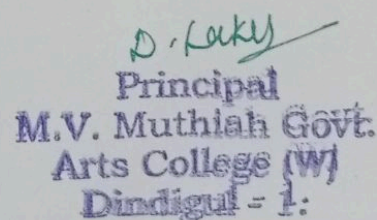 D. Laky
Principal
M.V. Muthiah Govt.
Arts College (W)
Dindigul - 1: